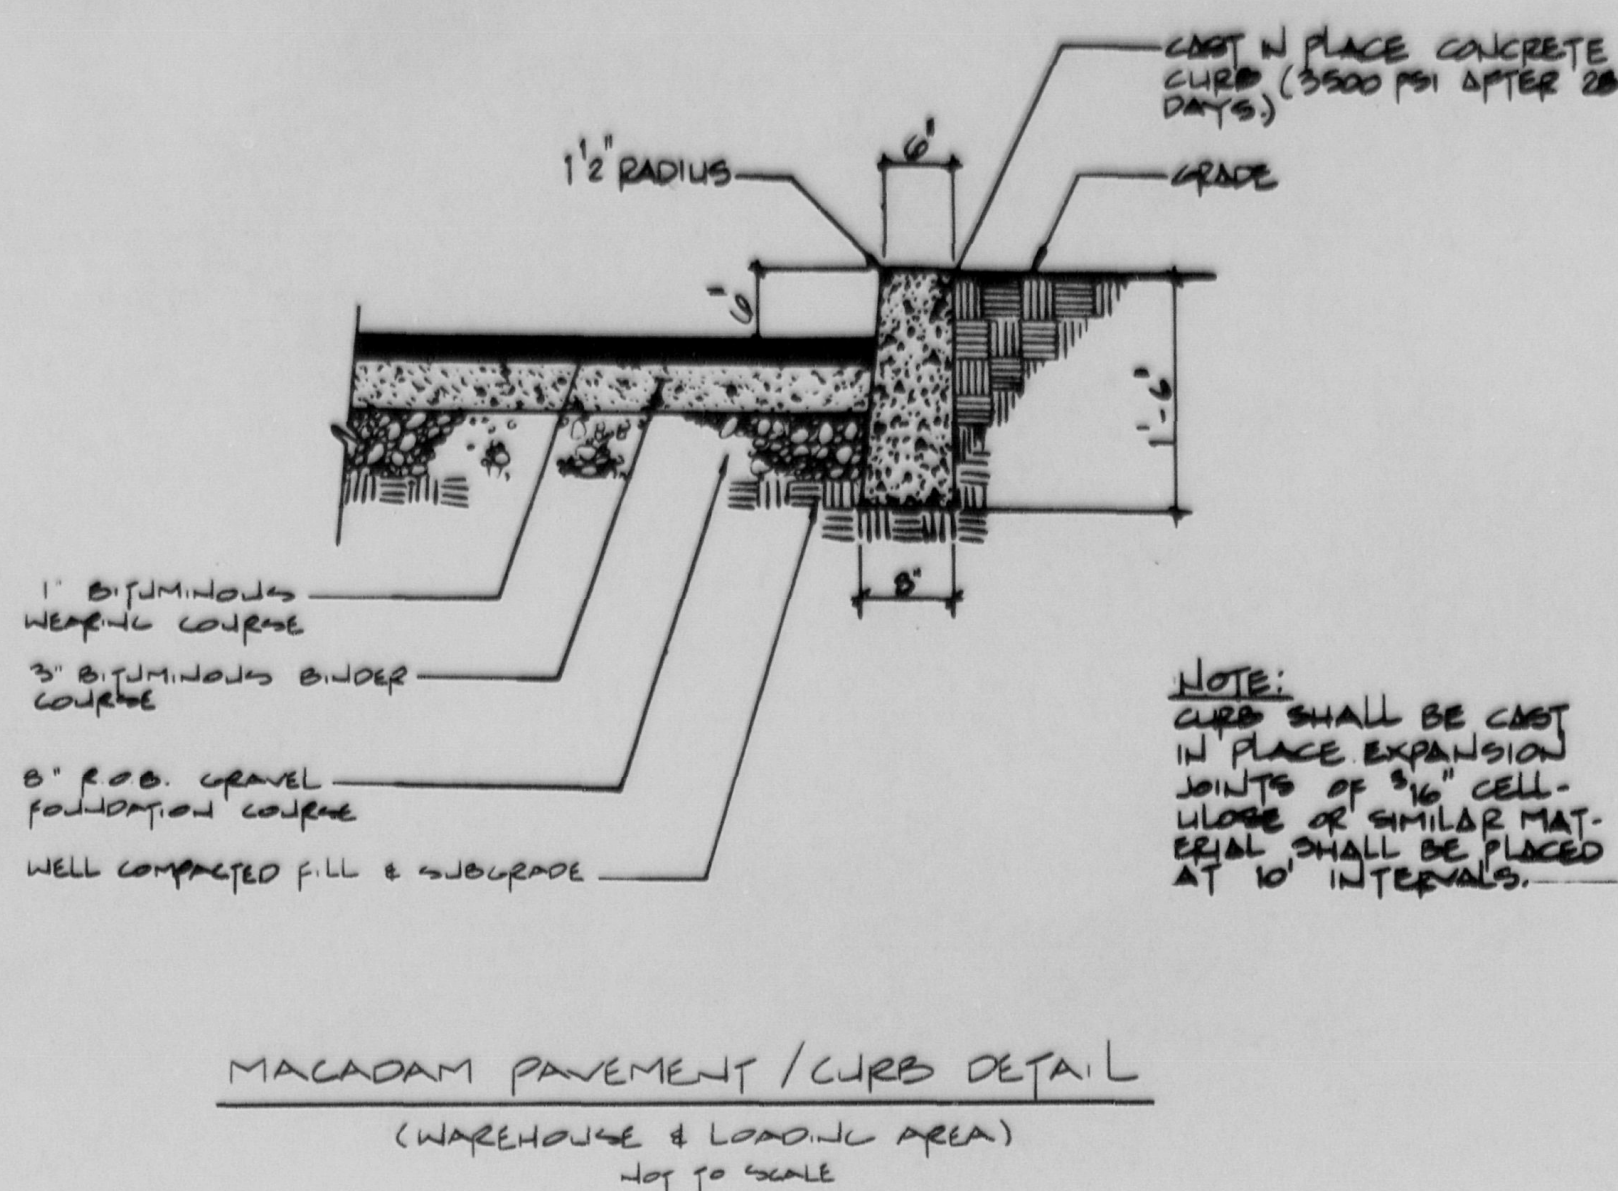 CAST IN PLACE CONCRETE
CURB (3500 PSI AFTER 28
DAYS.)
6"
1 1/2" RADIUS
GRADE
6"
1'-6"
8"
1" BITUMINOUS
WEARING COURSE
3" BITUMINOUS BINDER
COURSE
8" R.O.B. GRAVEL
FOUNDATION COURSE
WELL COMPACTED FILL & SUBGRADE
NOTE:
CURB SHALL BE CAST
IN PLACE. EXPANSION
JOINTS OF 3/16" CELL-
ULOSE OR SIMILAR MAT-
ERIAL SHALL BE PLACED
AT 10' INTERVALS.
MACADAM PAVEMENT / CURB DETAIL
(WAREHOUSE & LOADING AREA)
NOT TO SCALE